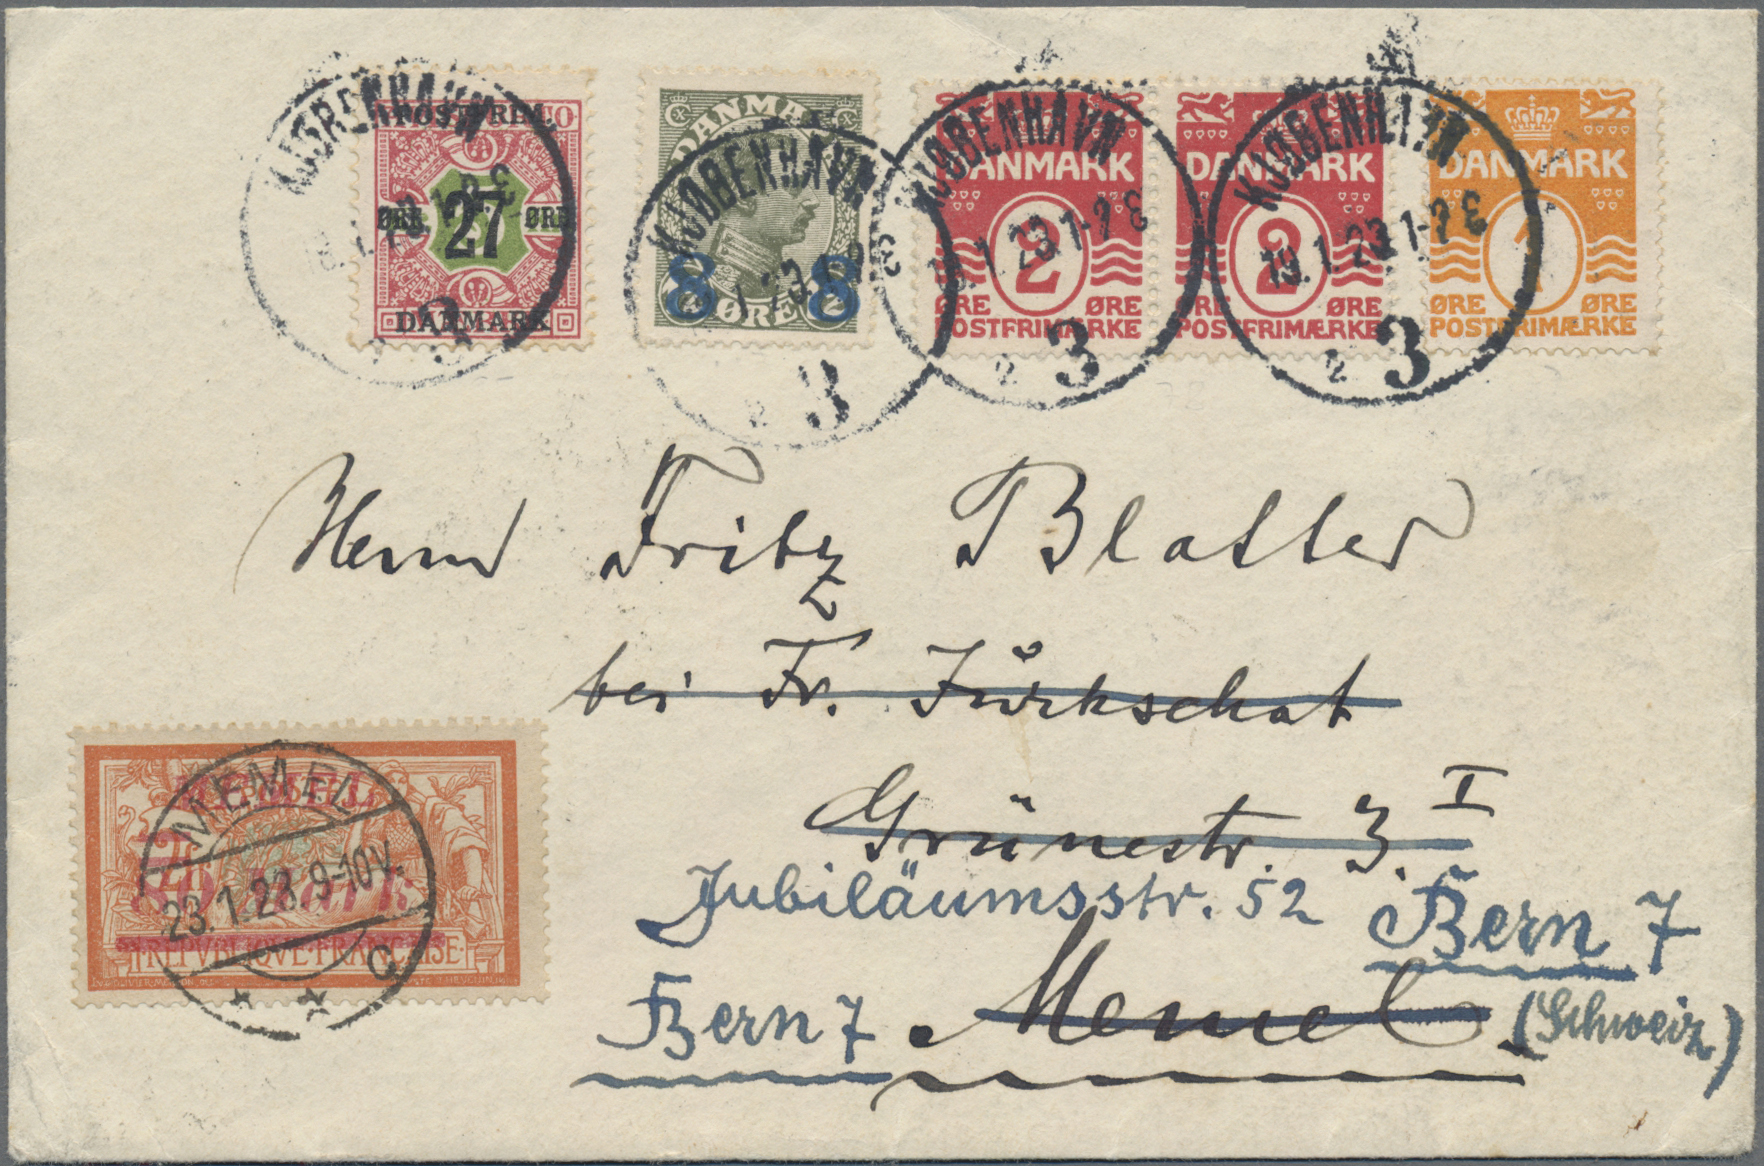 KJØBENHAVN
KJØBENHAVN
KJØBENHAVN
KJØBENHAVN
POSTFRIM.
ØRE 27 ØRE
DANMARK
DANMARK
8 8
12 ØRE 12
DANMARK
2
ØRE ØRE
POSTFRIMÆRKE
DANMARK
2
ØRE ØRE
POSTFRIMÆRKE
DANMARK
1
ØRE ØRE
POSTFRIMÆRKE
1.23 1-2 E
19.1.23 1-2 E
2 3
2 3
2 3
Herrn Fritz Blatter
bei Fr. Jurkschat
Grünestr. 3. I
Jubiläumsstr. 52 Bern 7
Bern 7 Memel (Schweiz)
MEMEL
MEMEL
23.1.23.9-10V.
Mark
REPVBLIQVE·FRANÇAISE
C